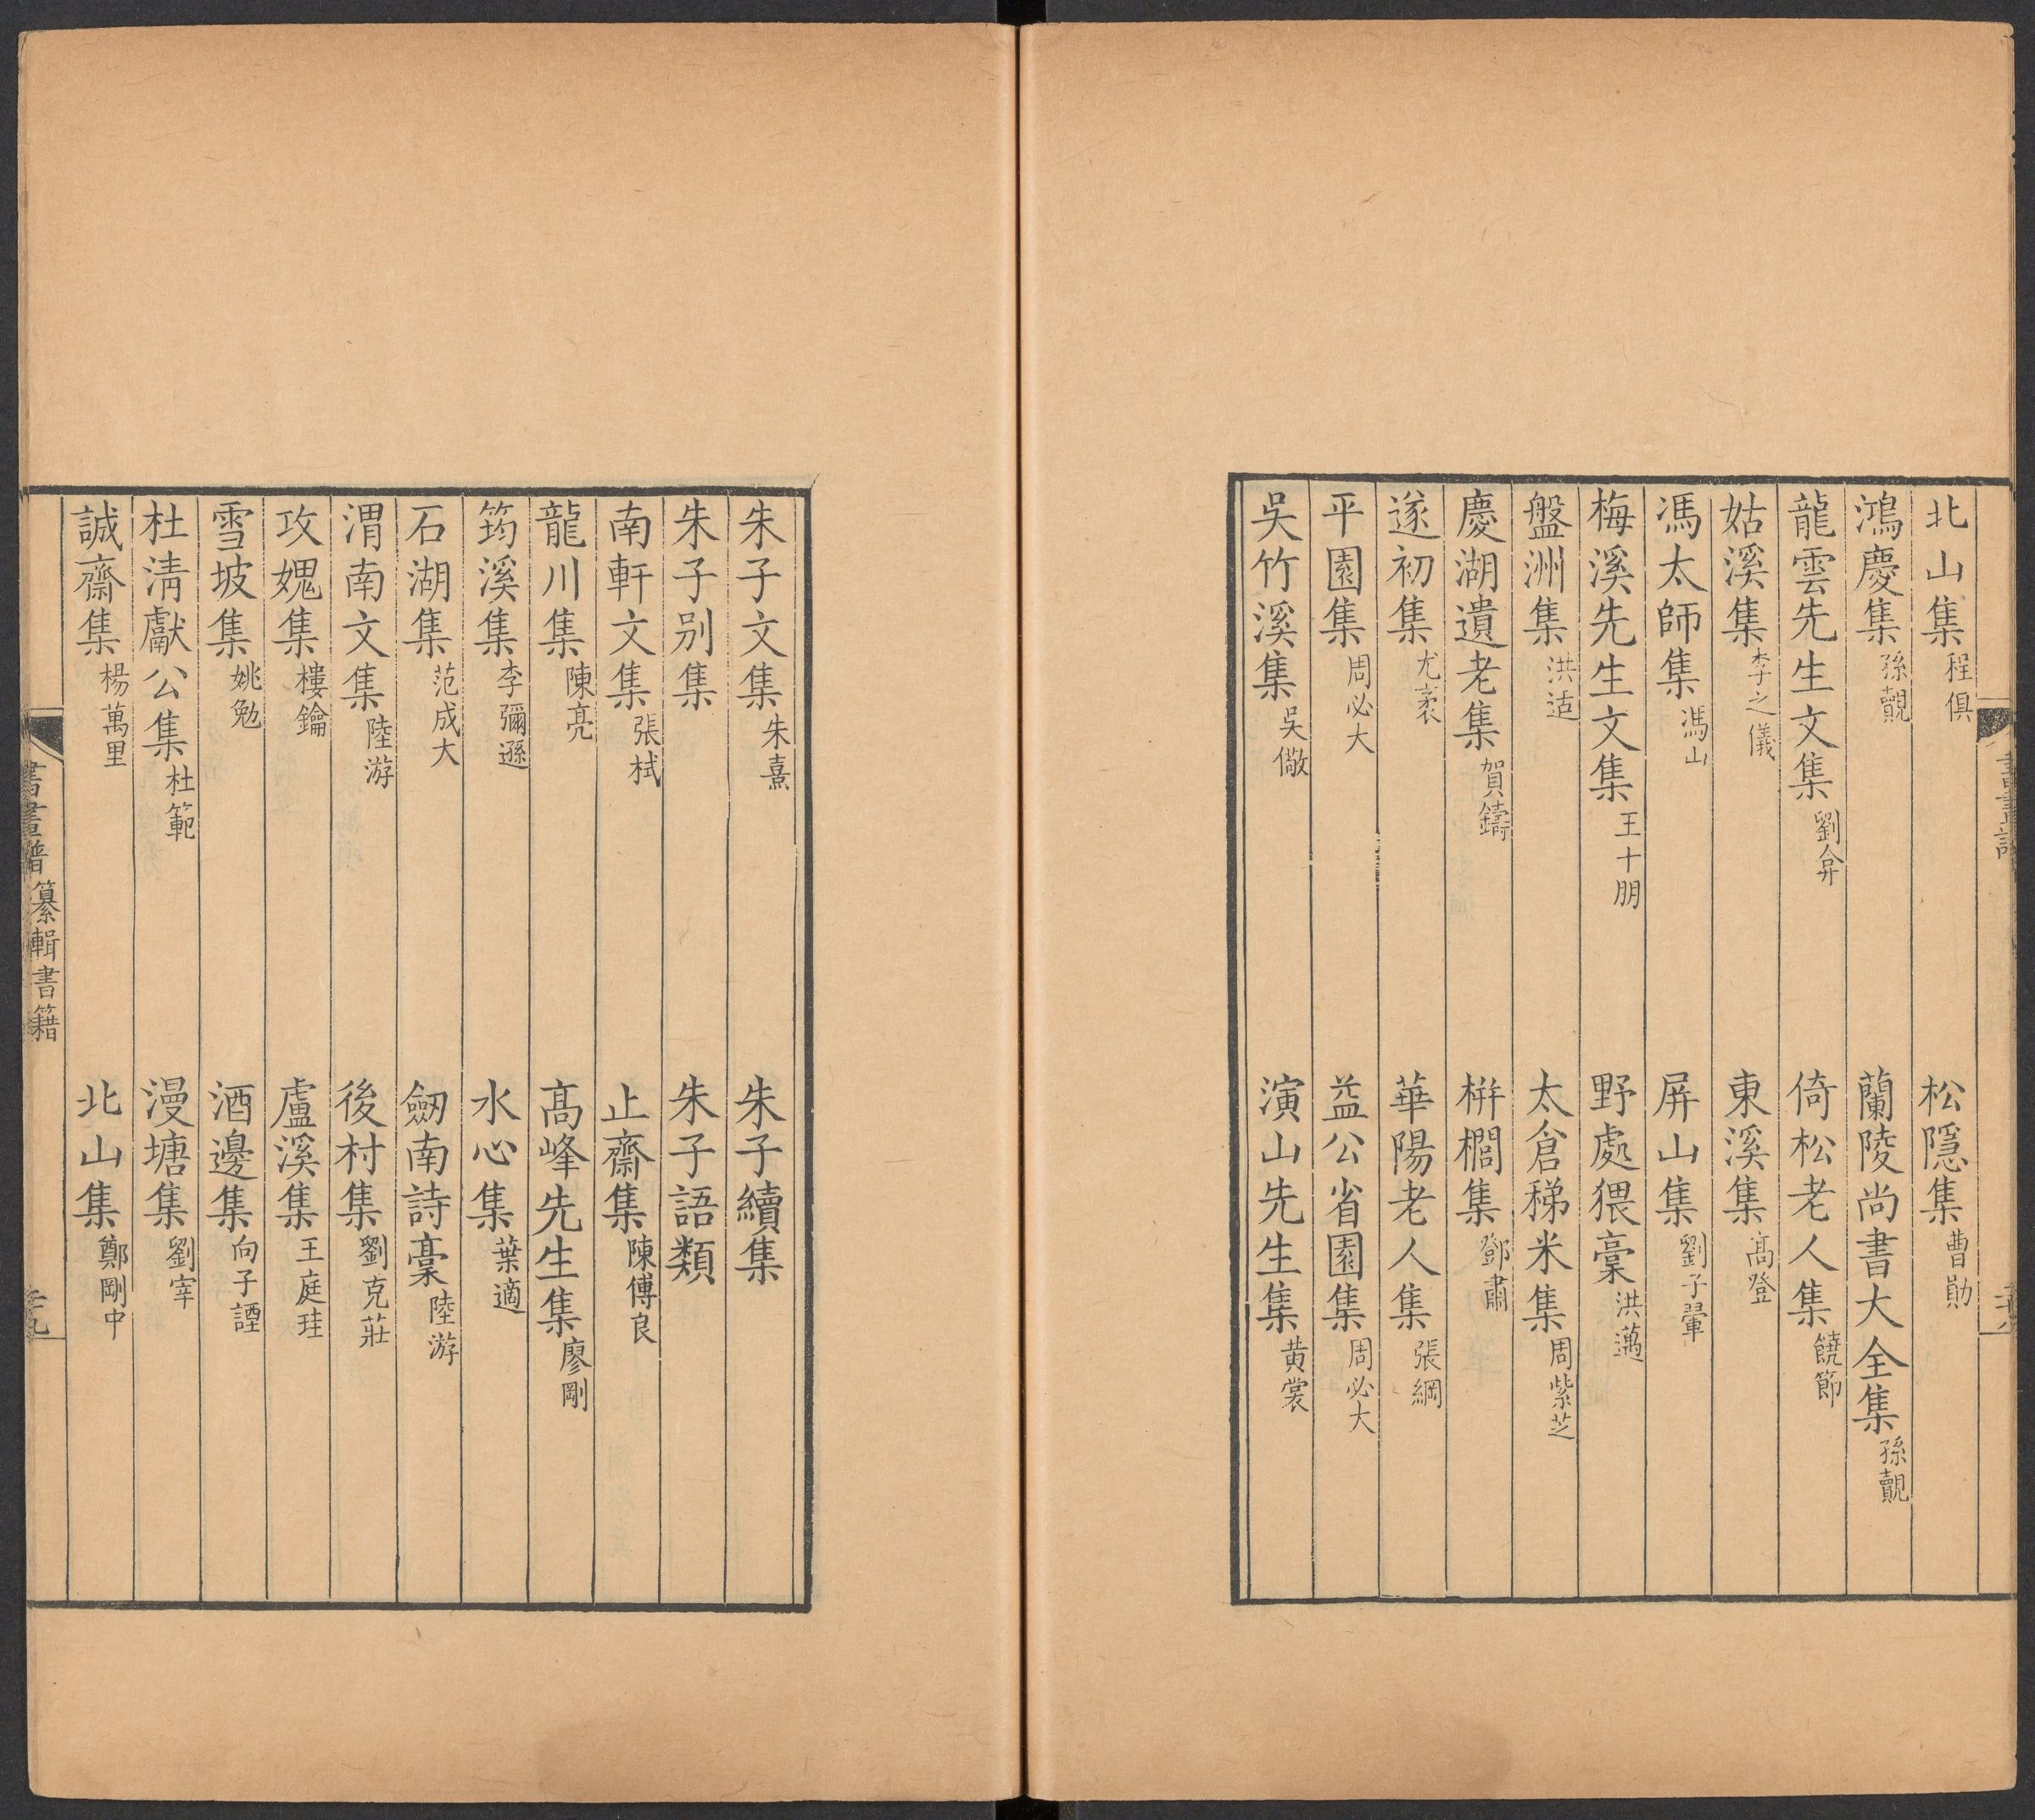 北山集程俱 松隱集曹勛
鴻慶集孫覿 蘭陵尚書大全集孫覿
龍雲先生文集劉弇 倚松老人集饒節
姑溪集李之儀 東溪集高登
馮太師集馮山 屏山集劉子翬
梅溪先生文集王十朋 野處猥稾洪邁
盤洲集洪适 太倉稊米集周紫芝
慶湖遺老集賀鑄 栟櫚集鄧肅
遂初集尤袤 華陽老人集張綱
平園集周必大 益公省園集周必大
吳竹溪集吳儆 演山先生集黃裳
朱子文集朱熹 朱子續集
朱子别集 朱子語類
南軒文集張栻 止齋集陳傅良
龍川集陳亮 高峰先生集廖剛
筠溪集李彌遜 水心集葉適
石湖集范成大 劒南詩稾陸游
渭南文集陸游 後村集劉克莊
攻媿集樓鑰 盧溪集王庭珪
雪坡集姚勉 酒邊集向子諲
杜清獻公集杜範 漫塘集劉宰
誠齋集楊萬里 北山集鄭剛中
書畫譜 纂輯書籍